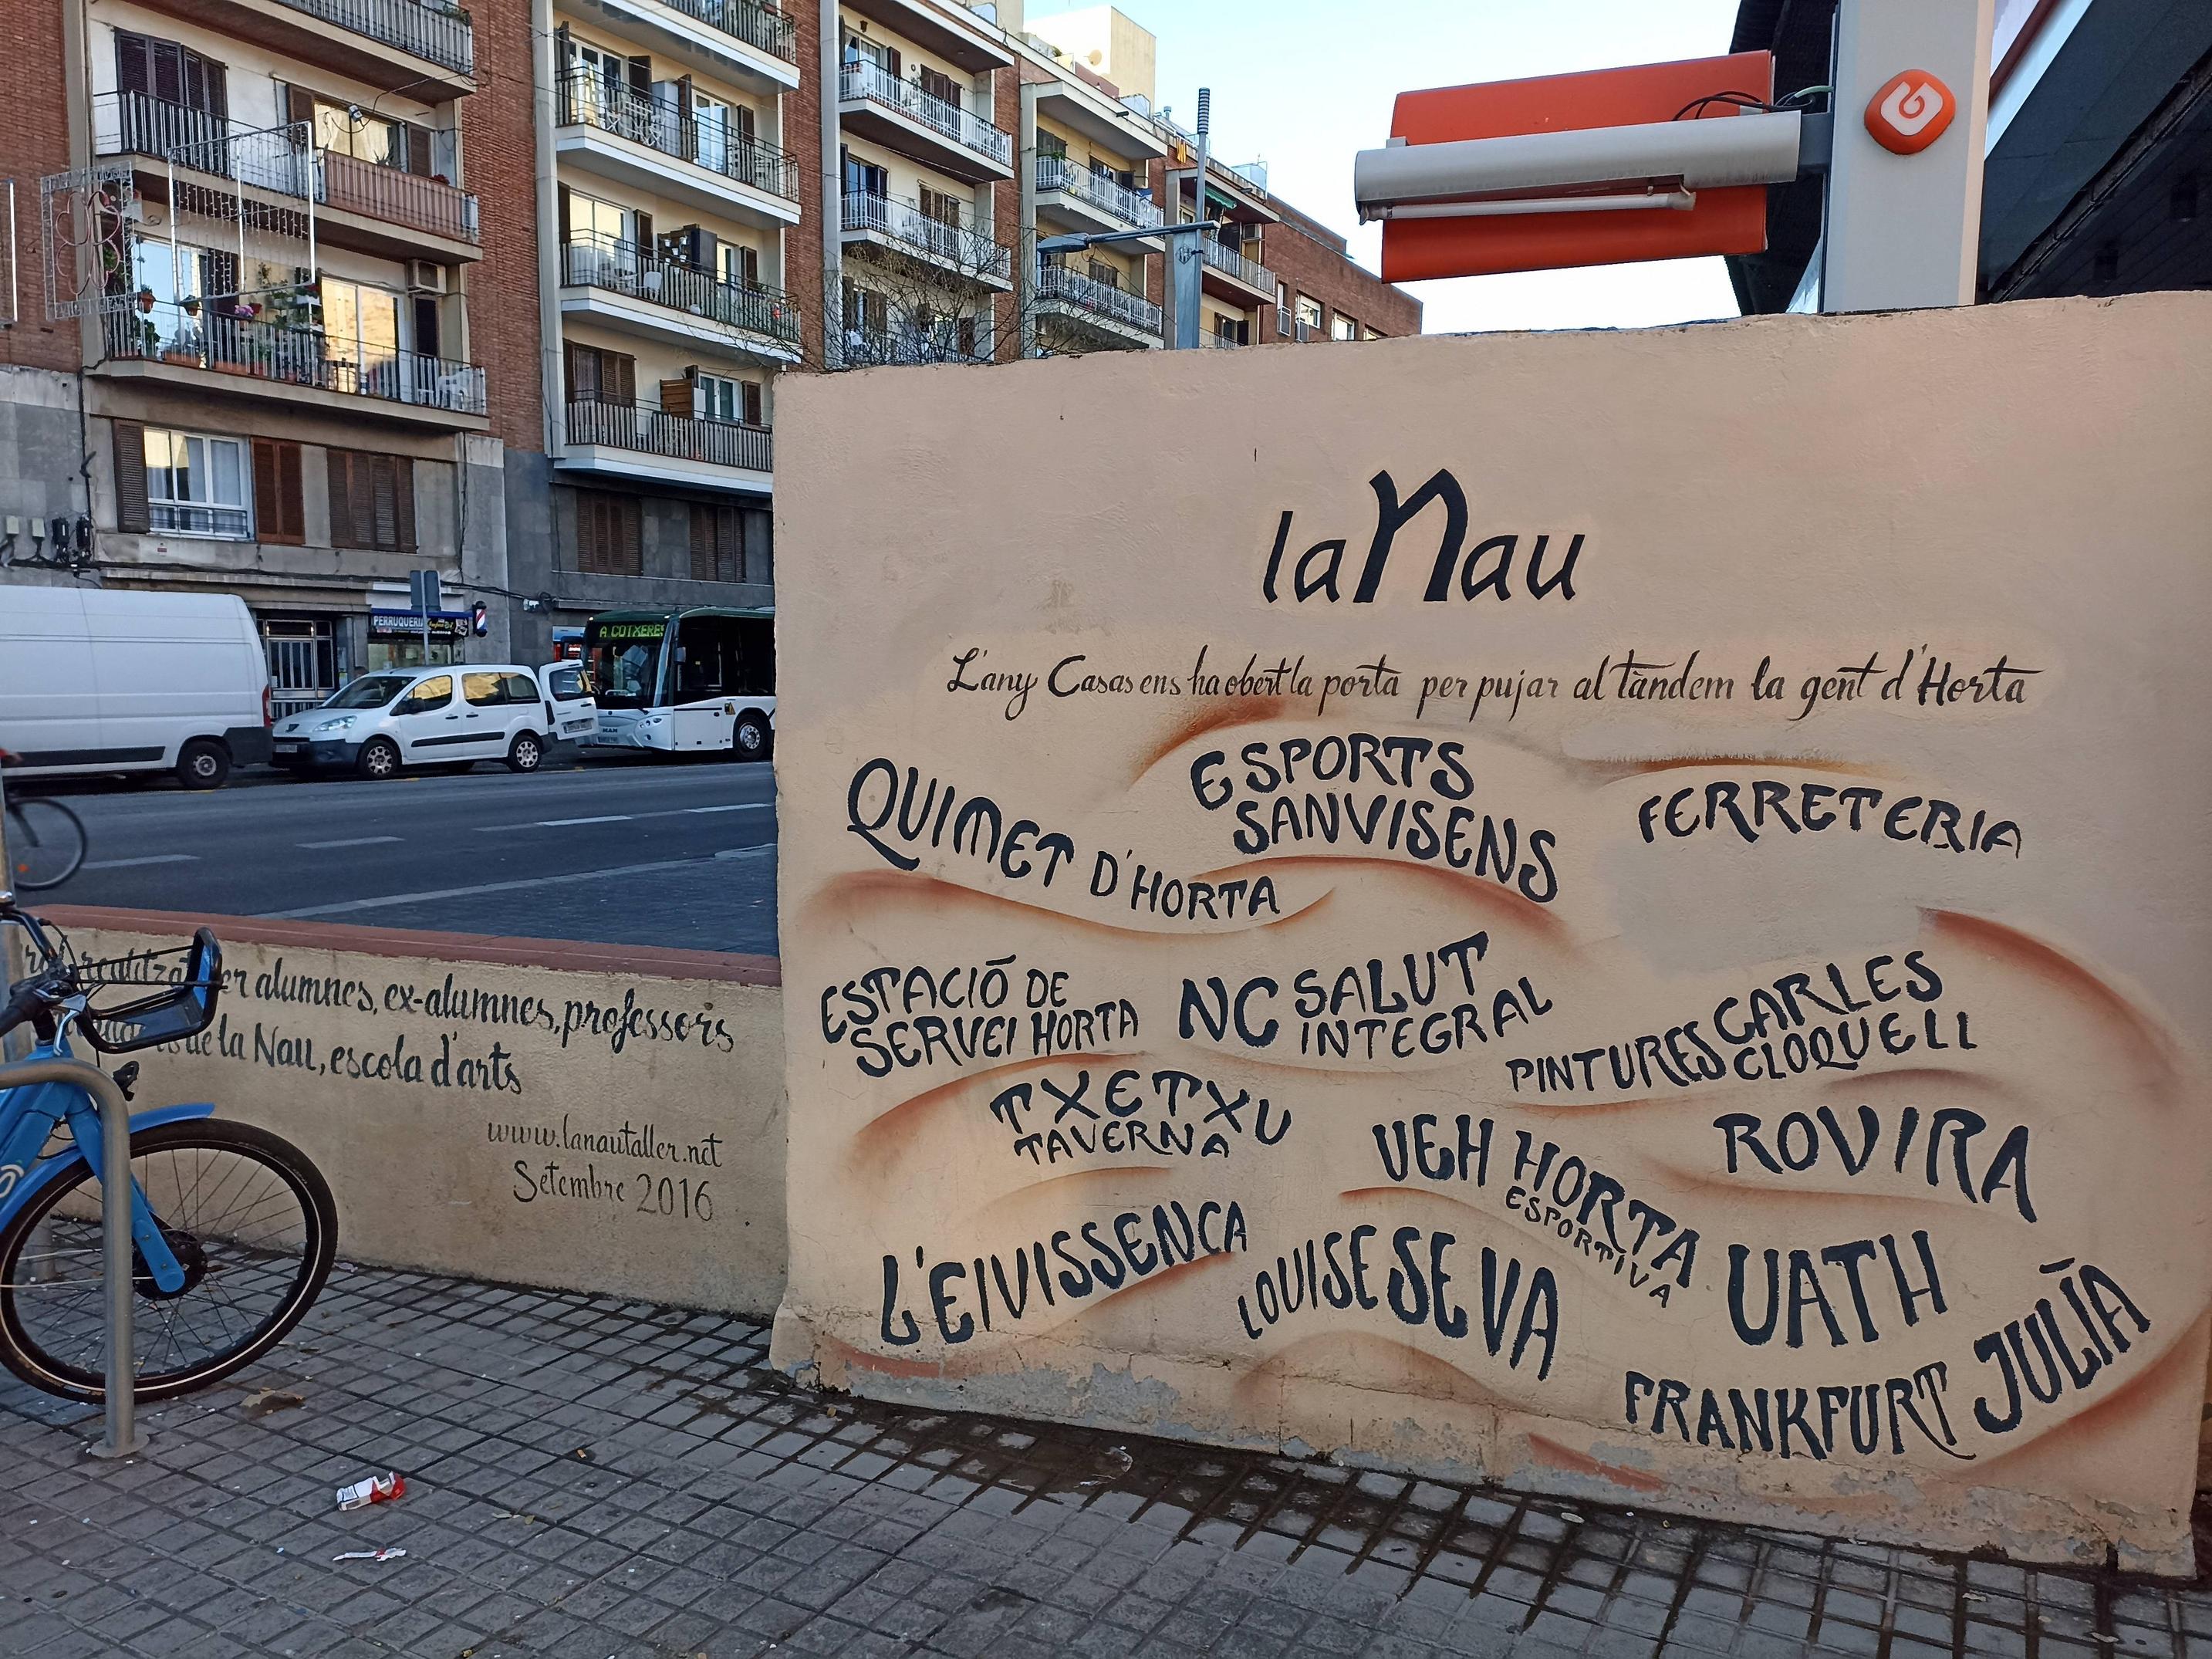 la Nau
L'any Casas ens ha obert la porta per pujar al tàndem la gent d'Horta
QUIMET D'HORTA
ESPORTS
SANVISENS
FERRETERIA
ESTACIÓ DE
SERVEI HORTA
NC SALUT
INTEGRAL
PINTURES CARLES
CLOQUELL
TXETXU
TAVERNA
UEH HORTA
ESPORTIVA
ROVIRA
L'EIVISSENCA
LOUISE SEVA
UATH
FRANKFURT JULIÀ
er alumnes, ex-alumnes, professors
de la Nau, escola d'arts
www.lanautaller.net
Setembre 2016
PERRUQUERIA
A COTXERES
MAN